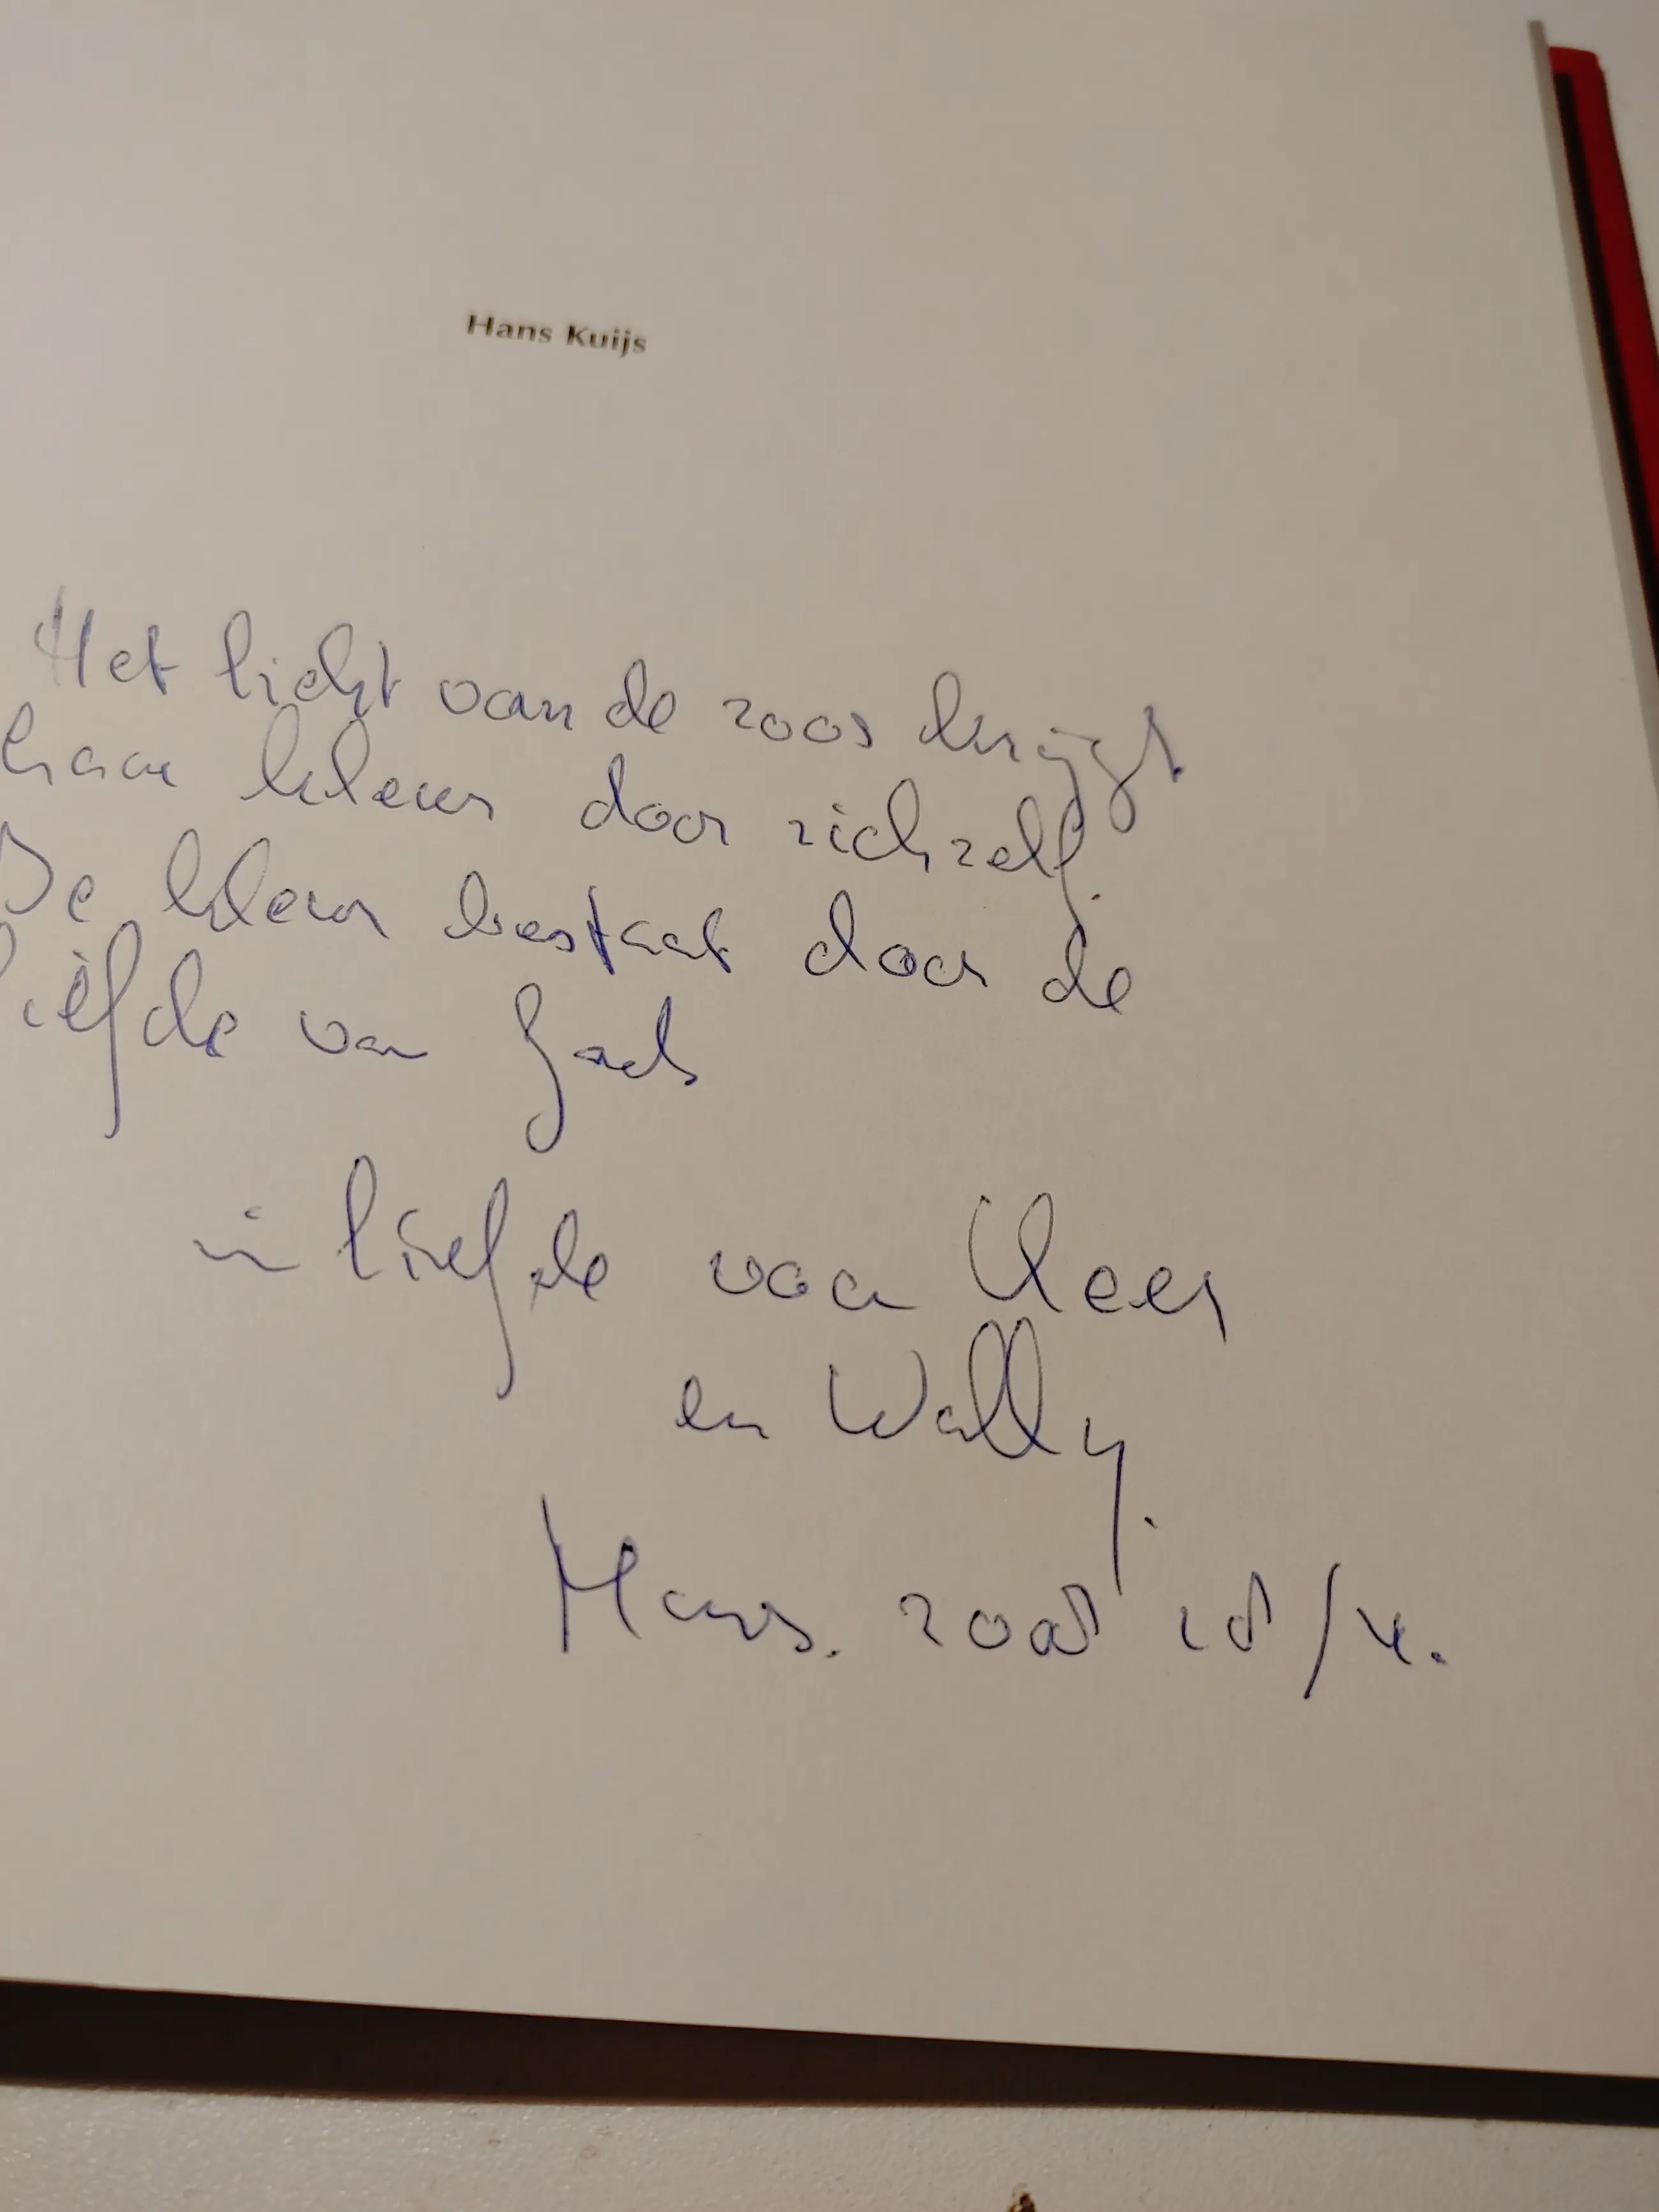 Hans Kuijs
Het licht van de roos krijgt
haar kleur door zichzelf.
De kleur bestaat door de
liefde van Gods
in liefde voor Kees
en Wally.
Hans. 2008 28/4.